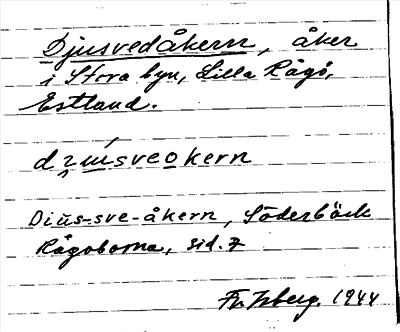 Djusvedåkern, åker
i Stora byn, Lilla Rågö,
Estland.
dzúısveokern
Diūs-sve-åkern, Söderbäck
Rågöborna, sid. 7
Isberg. 1944